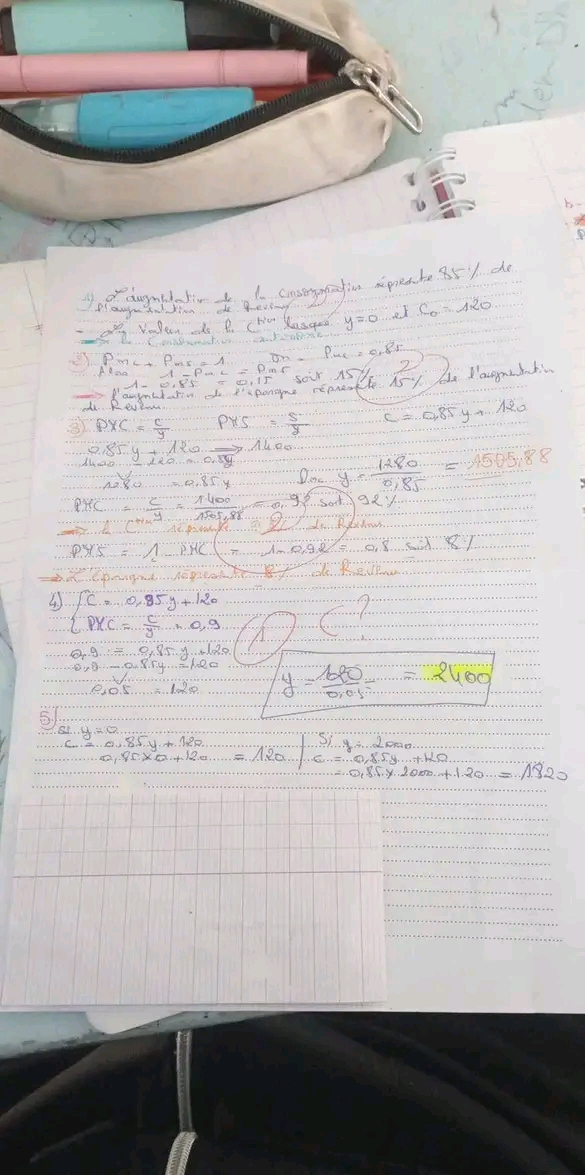 1) L'augmentation de la consommation représente 85% de
l'augmentation de Revenu
Valeur de la C lorsque y=0 et C₀ = 120
→ la Consommation
2) Pmc + Pms = 1 on Pmc = 0,85
Alors 1 - Pmc = Pms
1 - 0,85 = 0,15 soit 15%
2
→ l'augmentation de l'épargne représente 15% de l'augmentation
de Revenu
3) PMC = C/y PMS = S/y C = 0,85y + 120
0,85y + 120 → 1400
1400 - 120 = 0,85y
1280 = 0,85y Donc y = 1280/0,85 = 1505,88
PMC = C/y = 1400/1505,88 = 0,92 soit 92%
2
→ la représente de Revenu
PMS = 1 - PMC = 1 - 0,92 = 0,8 soit 8%
→ L'épargne représente 8% de Revenu
4) { C = 0,85y + 120
{ PMC = C/y = 0,9
1
C?
0,9 = 0,85y + 120
0,9 - 0,85y = 120
0,05 = 120
y = 120/0,05 = 2400
5)
Si y = 0
C = 0,85y + 120
0,85 × 0 + 120 = 120
Si y = 2000
C = 0,85y + 120
= 0,85 × 2000 + 120 = 1820